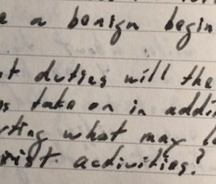 a benign begin
t duties will the
take on in addi
rting what may
rist activities?